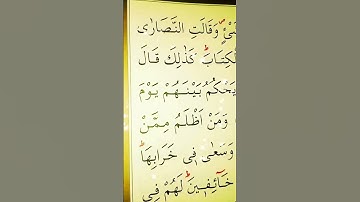 شَیْءٍ وَّقَالَتِ النَّصٰرٰی
الْكِتٰبَ ؕ كَذٰلِكَ قَالَ
یَحْكُمُ بَیْنَهُمْ یَوْمَ
وَمَنْ اَظْلَمُ مِمَّنْ
وَسَعٰی فِیْ خَرَابِهَا ؕ
خَآئِفِیْنَ ؕ لَهُمْ فِی